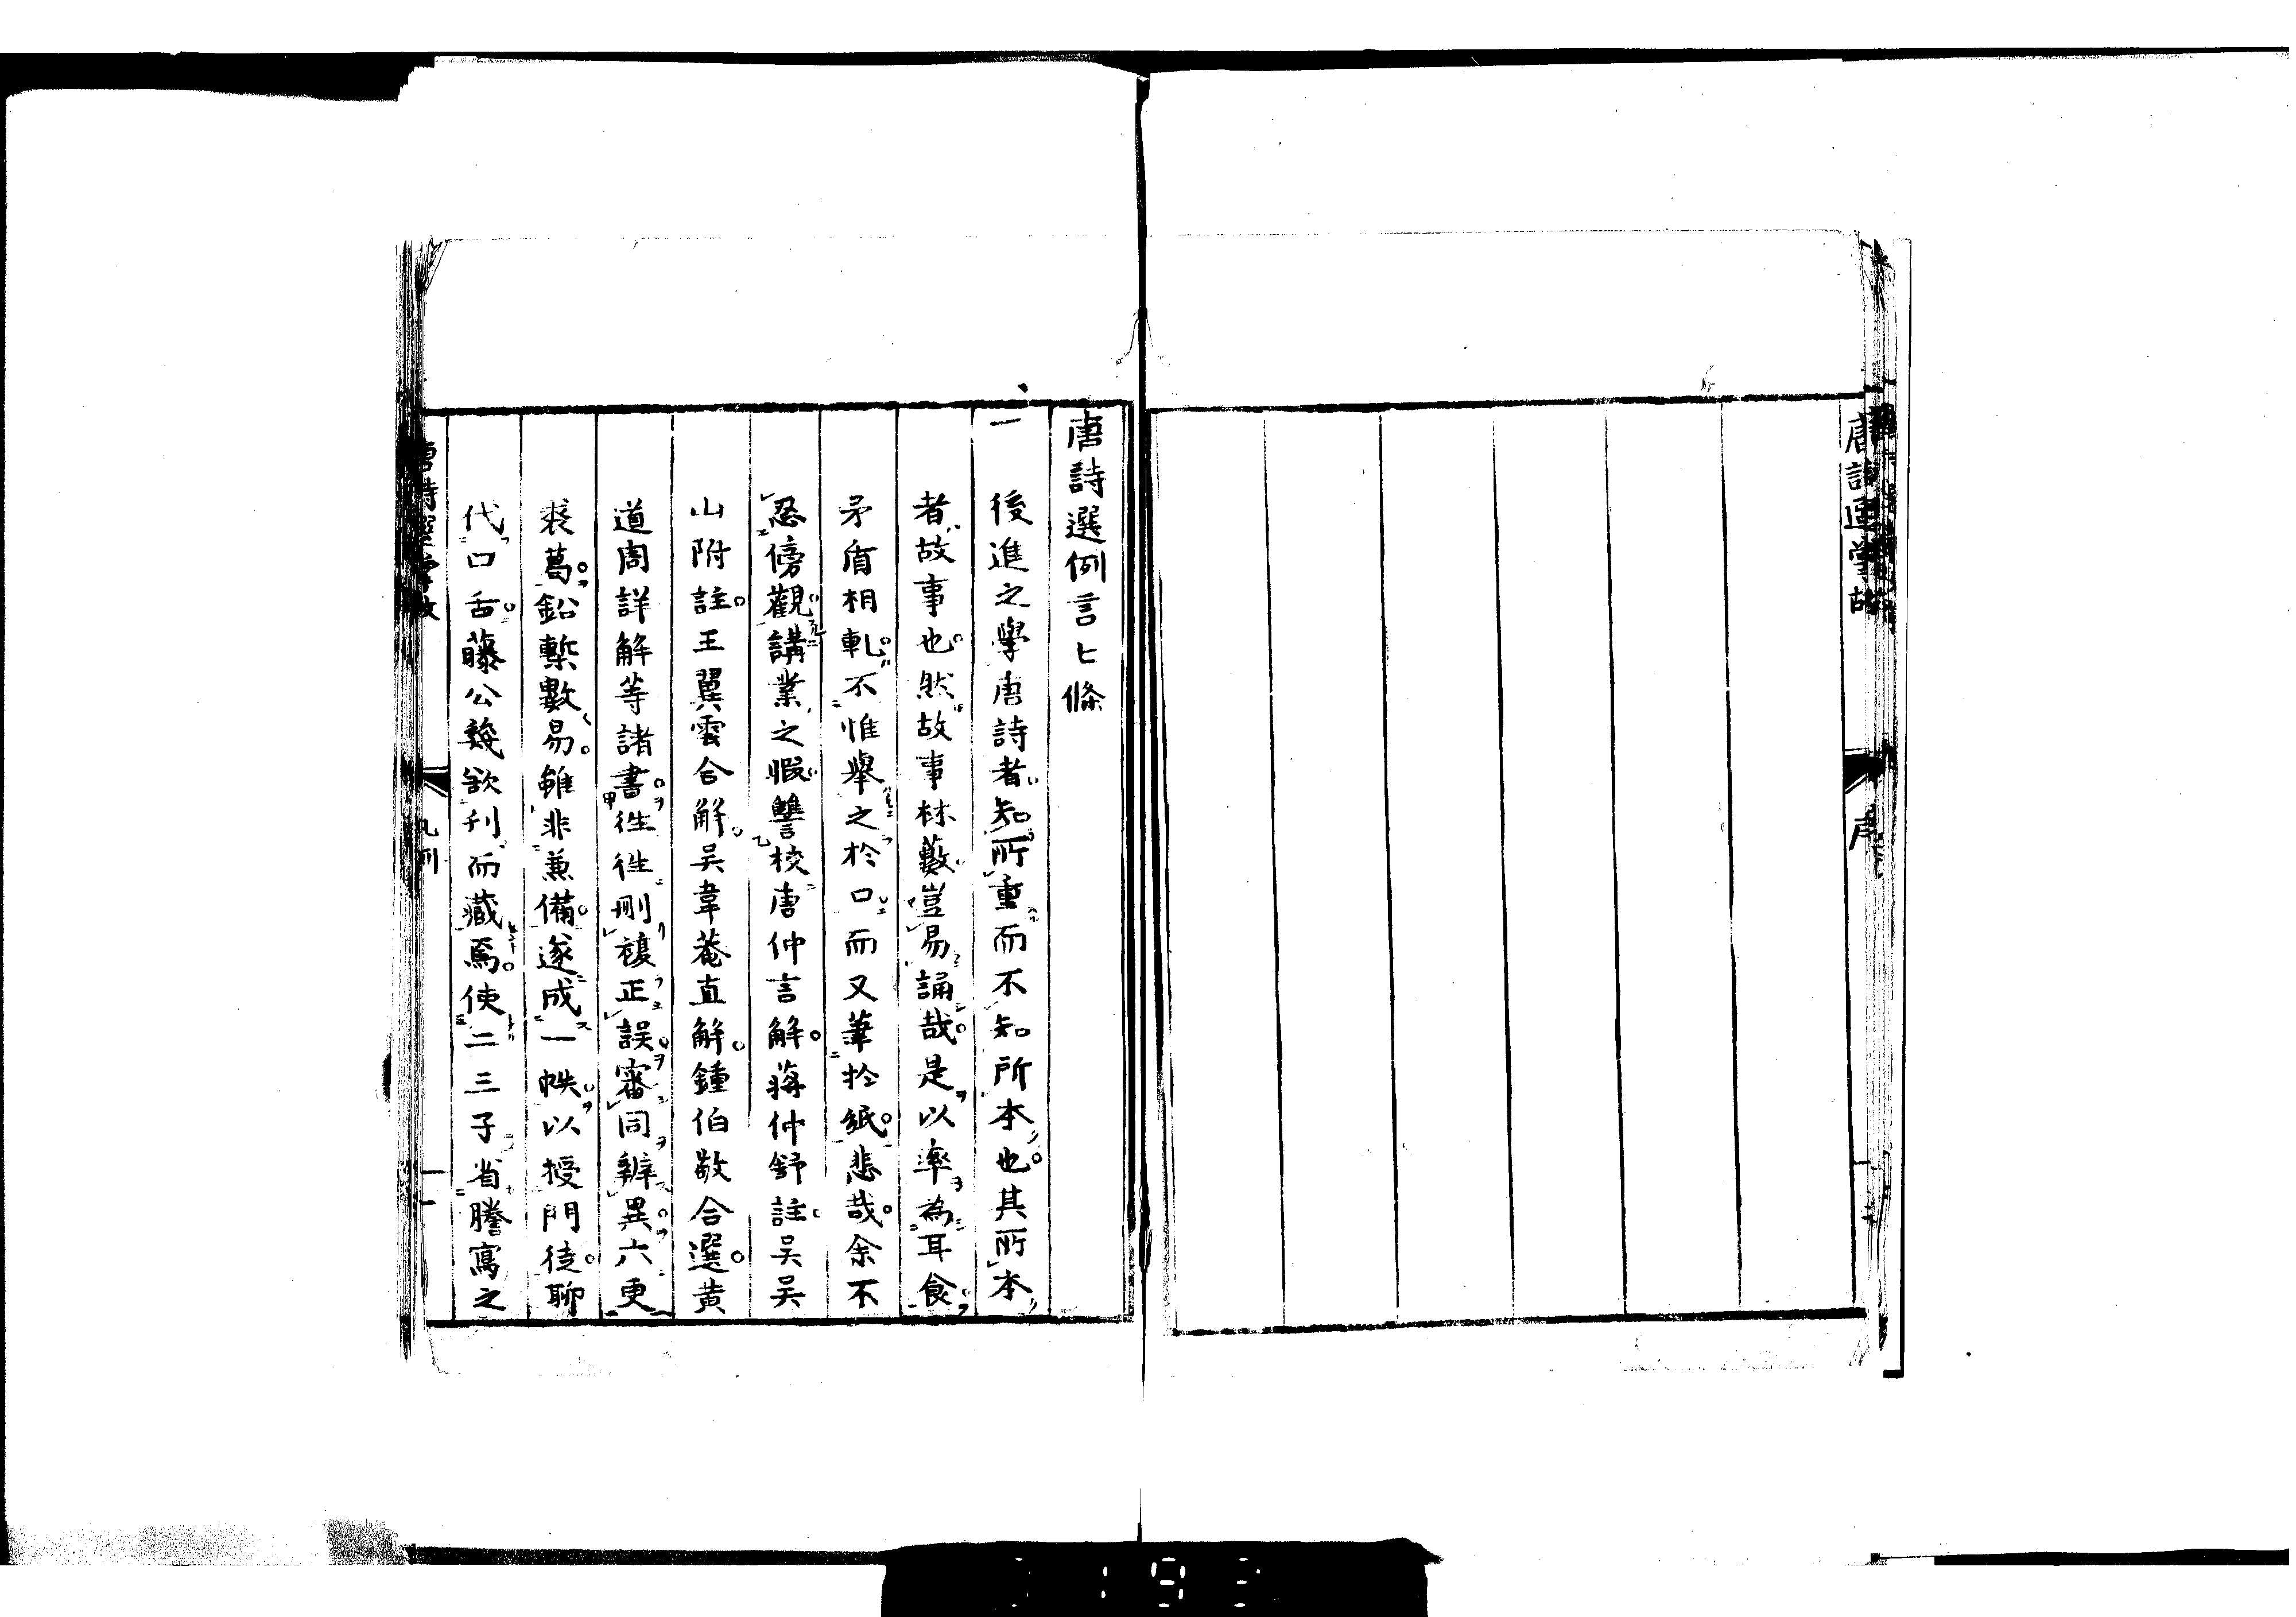 唐詩選例言七條
一 後進之學唐詩者知所重而不知所本也其所本
者故事也然故事林藪豈易誦哉是以率為耳食
矛盾相軋不惟舉之於口而又筆於紙悲哉余不
忍傍觀講業之暇讐校唐仲言解蔣仲舒註吳吳
山附註王翼雲合解吳韋菴直解鍾伯敬合選黃
道周詳解等諸書徃徃刪複正誤審同辨異六更
裘葛鉛槧數易雖非兼備遂成一帙以授門徒聊
代口舌藤公幾欲刊而藏焉使二三子省謄寫之
凡例